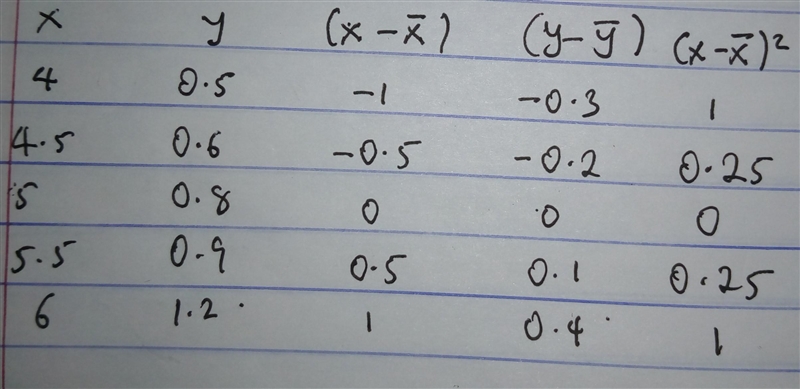 x y (x - x̄) (y - ȳ) (x - x̄)²
4 0.5 -1 -0.3 1
4.5 0.6 -0.5 -0.2 0.25
5 0.8 0 0 0
5.5 0.9 0.5 0.1 0.25
6 1.2 1 0.4 1